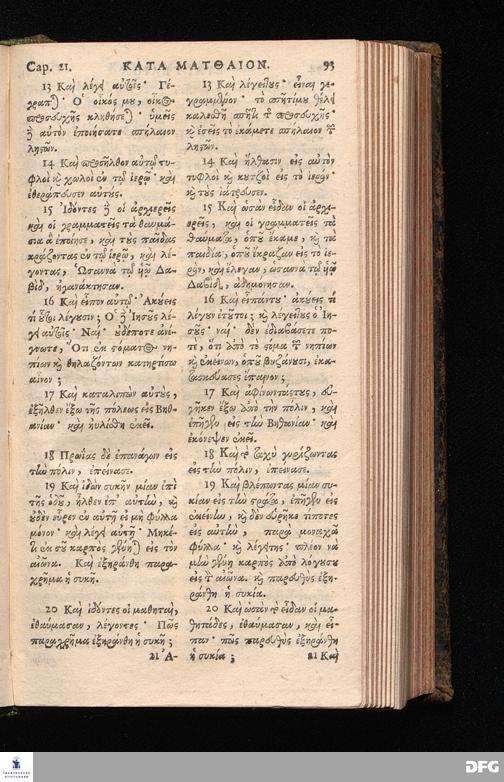 Cap. 21. ΚΑΤΑ ΜΑΤΘΑΙΟΝ. 93
13 Καὶ λέγει αὐτοῖς· Γέ-
γραπται· Ὁ οἶκός μου, οἶκος
προσευχῆς κληθήσεται· ὑμεῖς
δὲ αὐτὸν ἐποιήσατε σπήλαιον
λῃστῶν.
14 Καὶ προσῆλθον αὐτῷ τυ-
φλοὶ καὶ χωλοὶ ἐν τῷ ἱερῷ· καὶ
ἐθεράπευσεν αὐτούς.
15 Ἰδόντες δὲ οἱ ἀρχιερεῖς
καὶ οἱ γραμματεῖς τὰ θαυμά-
σια ἃ ἐποίησε, καὶ τοὺς παῖδας
κράζοντας ἐν τῷ ἱερῷ, καὶ λέ-
γοντας, Ὡσαννὰ τῷ υἱῷ Δα-
βίδ, ἠγανάκτησαν.
16 Καὶ εἶπον αὐτῷ· Ἀκούεις
τί οὗτοι λέγουσιν; Ὁ δὲ Ἰησοῦς λέ-
γει αὐτοῖς· Ναί· οὐδέποτε ἀνέ-
γνωτε, Ὅτι ἐκ στόματος νη-
πίων καὶ θηλαζόντων κατηρτίσω
αἶνον;
17 Καὶ καταλιπὼν αὐτούς,
ἐξῆλθεν ἔξω τῆς πόλεως εἰς Βηθ-
ανίαν· καὶ ηὐλίσθη ἐκεῖ.
18 Πρωΐας δὲ ἐπανάγων εἰς
τὴν πόλιν, ἐπείνασε.
19 Καὶ ἰδὼν συκῆν μίαν ἐπὶ
τῆς ὁδοῦ, ἦλθεν ἐπ' αὐτὴν, καὶ
οὐδὲν εὗρεν ἐν αὐτῇ εἰ μὴ φύλλα
μόνον· καὶ λέγει αὐτῇ· Μηκέ-
τι ἐκ σοῦ καρπὸς γένηται εἰς τὸν
αἰῶνα. Καὶ ἐξηράνθη παρα-
χρῆμα ἡ συκῆ.
20 Καὶ ἰδόντες οἱ μαθηταὶ,
ἐθαύμασαν, λέγοντες· Πῶς
παραχρῆμα ἐξηράνθη ἡ συκῆ;
21 Ἀ-
13 Καὶ λέγει τους· εἶναι γε-
γραμμένον· τὸ σπῆτι μου θέλει
καλεσθῆ σπῆτι τῆς προσευχῆς·
καὶ ἐσεῖς τὸ ἐκάμετε σπήλαιον τῶν
λῃστῶν.
14 Καὶ ἦλθασιν εἰς αὐτὸν
τυφλοὶ καὶ κουτζοὶ εἰς τὸ ἱερὸν·
καὶ τοὺς ἰάτρευσεν.
15 Καὶ ὡσὰν εἶδαν οἱ ἀρχι-
ερεῖς, καὶ οἱ γραμματεῖς τὰ
θαύμαζα, ὁποῦ ἔκαμε, καὶ τὰ
παιδία, ὁποῦ ἔκραζαν εἰς τὸ ἱε-
ρὸν, καὶ ἔλεγαν, ὡσαννὰ τῷ υἱῷ
Δαβὶδ, ἀδημόνησαν.
16 Καὶ εἶπάν του· ἀκούεις τί
λέγουν ἐτοῦτοι; καὶ λέγει τους ὁ Ἰη-
σοῦς· ναί· δὲν ἐδιαβάσετε πο-
τὲ, ὅτι ἀπὸ τὸ στόμα τῶν νηπίων
καὶ ἐκείνων, ὁποῦ βυζάνουσι, ἐκα-
τασκεύασες ἔπαινον;
17 Καὶ ἀφίνωντας τους, εὐ-
γῆκεν ἔξω ἀπὸ τὴν πόλιν, καὶ
ἐπῆγεν εἰς τὴν Βηθανίαν· καὶ
ἐκόνεψεν ἐκεῖ.
18 Καὶ τὸ ταχὺ γυρίζωντας
εἰς τὴν πόλιν, ἐπείνασε.
19 Καὶ βλέπωντας μίαν συ-
κίαν εἰς τὴν στράτα, ἐπῆγεν εἰς
ἐκείνην, καὶ δὲν εὕρηκε τίποτες
εἰς αὐτὴν, παρὰ μοναχὰ
φύλλα· καὶ λέγει της· πλέον νὰ
μὴν γένῃ καρπὸς ἀπὸ λόγου σου
εἰς τὸν αἰῶνα. καὶ παρευθὺς ἐξη-
ράνθη ἡ συκία.
20 Καὶ ὡσὰν τὸ εἶδαν οἱ μα-
θητάδες, ἐθαύμασαν, καὶ εἶ-
παν· πῶς παρευθὺς ἐξηράνθη
ἡ συκία;
21 Καὶ
FRANCKESCHE STIFTUNGEN
DFG